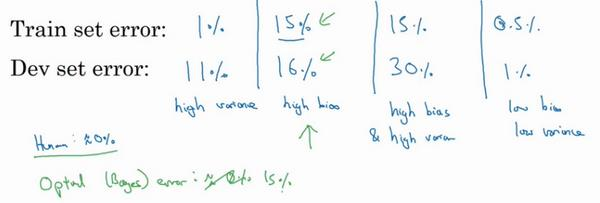 Train set error: 1% 15% 15% 0.5%
Dev set error: 11% 16% 30% 1%
high variance high bias high bias low bias
& high varian low variance
Human: ≈0%
Optimal (Bayes) error: 15%